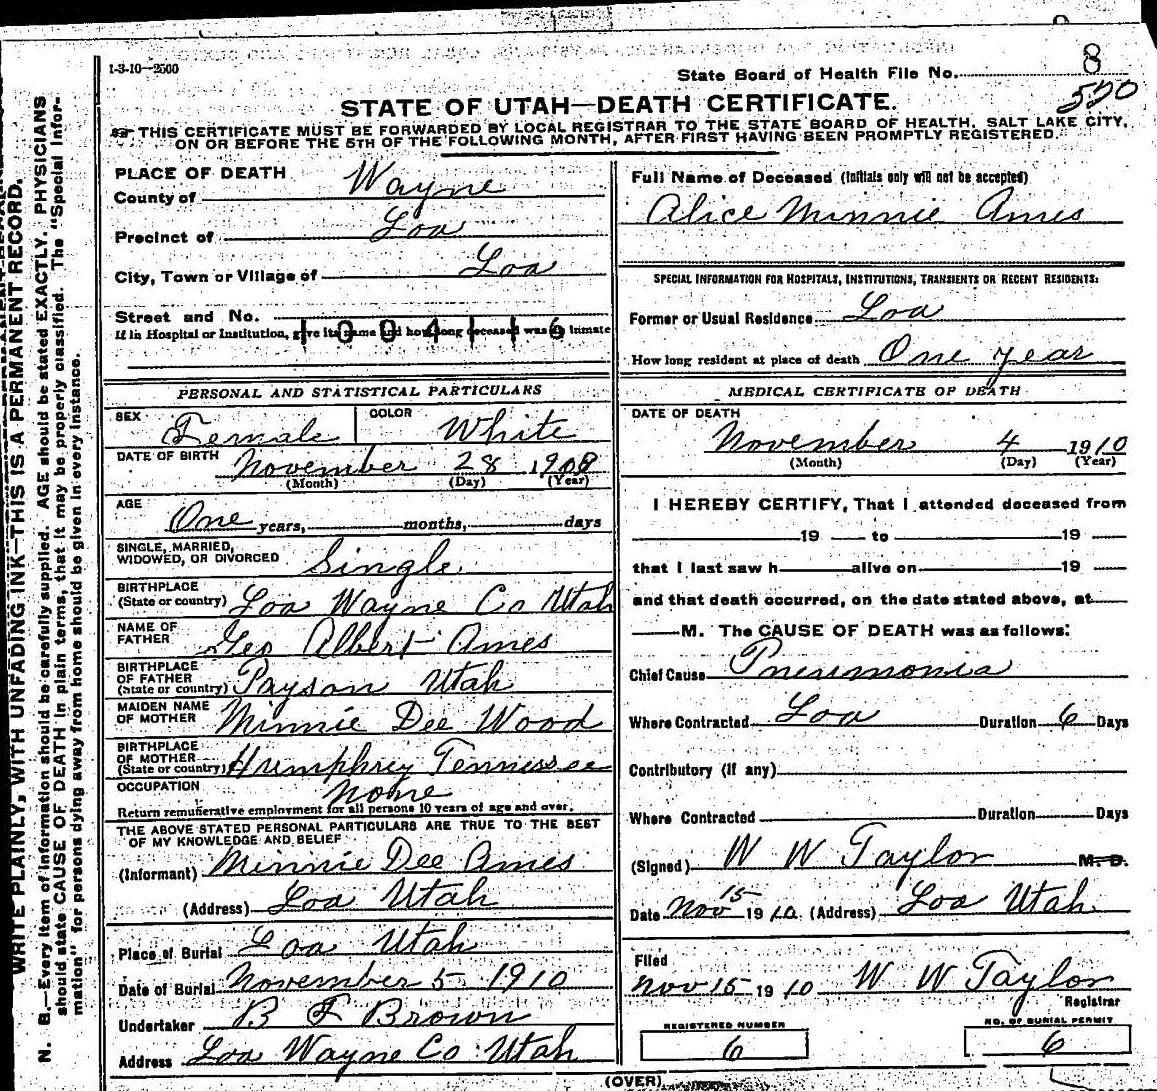 1-3-10—2500
State Board of Health File No. 8
550
STATE OF UTAH—DEATH CERTIFICATE.
THIS CERTIFICATE MUST BE FORWARDED BY LOCAL REGISTRAR TO THE STATE BOARD OF HEALTH, SALT LAKE CITY,
ON OR BEFORE THE 5TH OF THE FOLLOWING MONTH, AFTER FIRST HAVING BEEN PROMPTLY REGISTERED.
WRITE PLAINLY, WITH UNFADING INK—THIS IS A PERMANENT RECORD.
N. B.—Every item of information should be carefully supplied. AGE should be stated EXACTLY. PHYSICIANS
should state CAUSE OF DEATH in plain terms, that it may be properly classified. The "Special Infor-
mation" for persons dying away from home should be given in every instance.
PLACE OF DEATH
County of Wayne
Precinct of Loa
City, Town or Village of Loa
Street and No.
If in Hospital or Institution, give its name and how long deceased was inmate
1004116
PERSONAL AND STATISTICAL PARTICULARS
SEX Female COLOR White
DATE OF BIRTH November 28 1908
(Month) (Day) (Year)
AGE One years, months, days
SINGLE, MARRIED,
WIDOWED, OR DIVORCED Single
BIRTHPLACE
(State or country) Loa Wayne Co Utah
NAME OF
FATHER Geo Albert Ames
BIRTHPLACE
OF FATHER
(State or country) Payson Utah
MAIDEN NAME
OF MOTHER Minnie Dee Wood
BIRTHPLACE
OF MOTHER
(State or country) Humphrey Tennessee
OCCUPATION None
Return remunerative employment for all persons 10 years of age and over.
THE ABOVE STATED PERSONAL PARTICULARS ARE TRUE TO THE BEST
OF MY KNOWLEDGE AND BELIEF
(Informant) Minnie Dee Ames
(Address) Loa Utah
Place of Burial Loa Utah
Date of Burial November 5 1910
Undertaker B F Brown
Address Loa Wayne Co Utah
Full Name of Deceased (Initials only will not be accepted)
Alice Minnie Ames
SPECIAL INFORMATION FOR HOSPITALS, INSTITUTIONS, TRANSIENTS OR RECENT RESIDENTS:
Former or Usual Residence Loa
How long resident at place of death One year
MEDICAL CERTIFICATE OF DEATH
DATE OF DEATH
November 4 1910
(Month) (Day) (Year)
I HEREBY CERTIFY, That I attended deceased from
19 to 19
that I last saw h alive on 19
and that death occurred, on the date stated above, at
M. The CAUSE OF DEATH was as follows:
Chief Cause Pneumonia
Where Contracted Loa Duration 6 Days
Contributory (if any)
Where Contracted Duration Days
(Signed) W W Taylor M. D.
Date Nov 15 1910 (Address) Loa Utah
Filed
Nov 15 1910 W W Taylor
Registrar
REGISTERED NUMBER
6
NO. OF BURIAL PERMIT
6
(OVER)